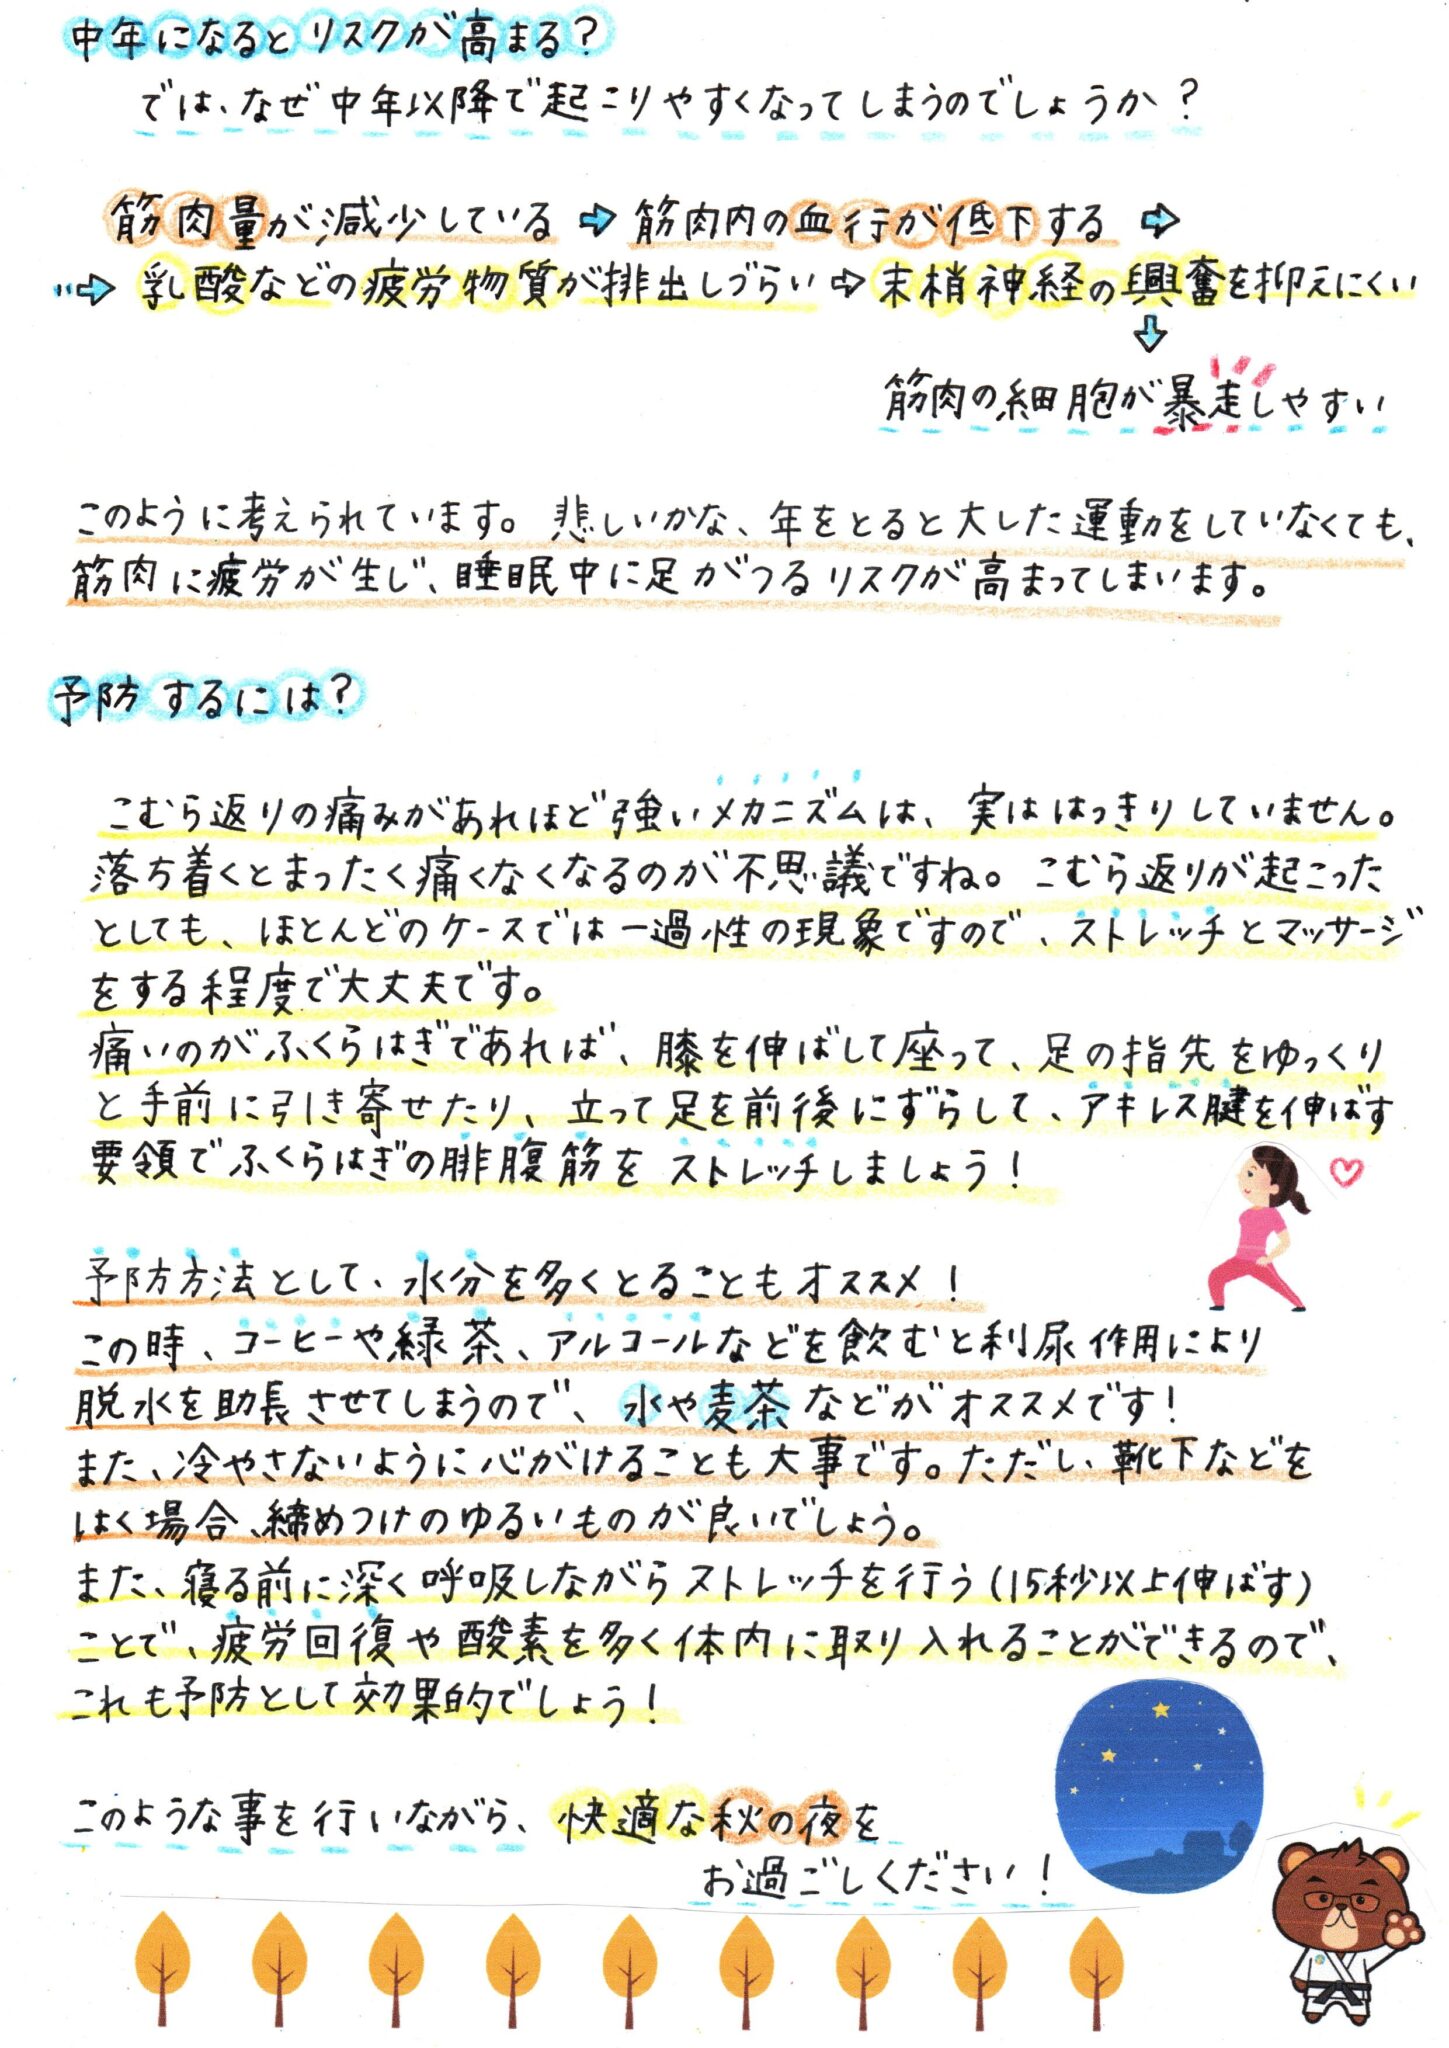 中年になるとリスクが高まる？
では、なぜ中年以降で起こりやすくなってしまうのでしょうか？
筋肉量が減少している ⇨ 筋肉内の血行が低下する ⇨
⇨ 乳酸などの疲労物質が排出しづらい ⇨ 末梢神経の興奮を抑えにくい
⇩
筋肉の細胞が暴走しやすい
このように考えられています。悲しいかな、年をとると大した運動をしていなくても、
筋肉に疲労が生じ、睡眠中に足がつるリスクが高まってしまいます。
予防するには？
こむら返りの痛みがあれほど強いメカニズムは、実ははっきりしていません。
落ち着くとまったく痛くなくなるのが不思議ですね。こむら返りが起こった
としても、ほとんどのケースでは一過性の現象ですので、ストレッチとマッサージ
をする程度で大丈夫です。
痛いのがふくらはぎであれば、膝を伸ばして座って、足の指先をゆっくり
と手前に引き寄せたり、立って足を前後にずらして、アキレス腱を伸ばす
要領でふくらはぎの腓腹筋をストレッチしましょう！
予防方法として、水分を多くとることもオススメ！
この時、コーヒーや緑茶、アルコールなどを飲むと利尿作用により
脱水を助長させてしまうので、水や麦茶などがオススメです！
また、冷やさないように心がけることも大事です。ただし、靴下などを
はく場合、締めつけのゆるいものが良いでしょう。
また、寝る前に深く呼吸しながらストレッチを行う(15秒以上伸ばす)
ことで、疲労回復や酸素を多く体内に取り入れることができるので、
これも予防として効果的でしょう！
このような事を行いながら、快適な秋の夜を
お過ごしください！